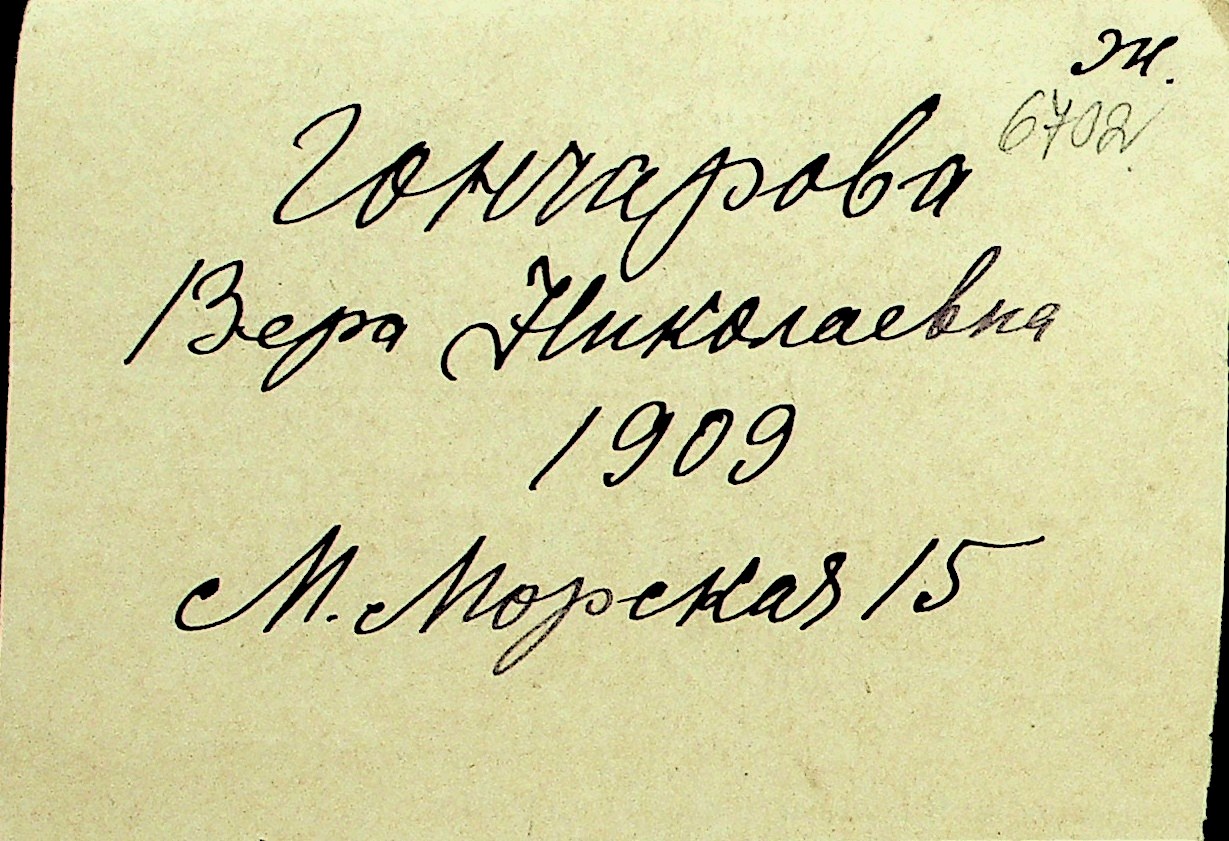 ж.
6702
Гончарова
Вера Николаевна
1909
М. Морская 15